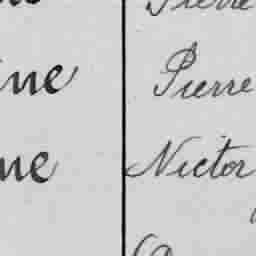 Pierre
ine Pierre
ne Victor